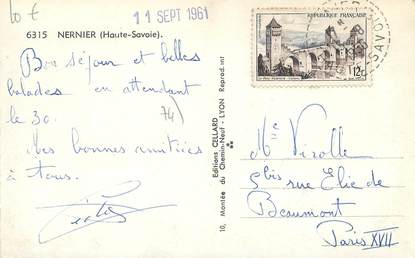 10 €
11 SEPT 1961
6315 NERNIER (Haute-Savoie).
Bon séjour et belles
balades en attendant
le 30.
74
Mes bonnes amitiées
à tous.
Editions CELLARD
10, Montée du Chemin-Neuf - LYON Reprod. int
REPUBLIQUE FRANÇAISE
12F
SAVOIE
Mlle Virolle
5bis rue Elie de
Beaumont
Paris XVII